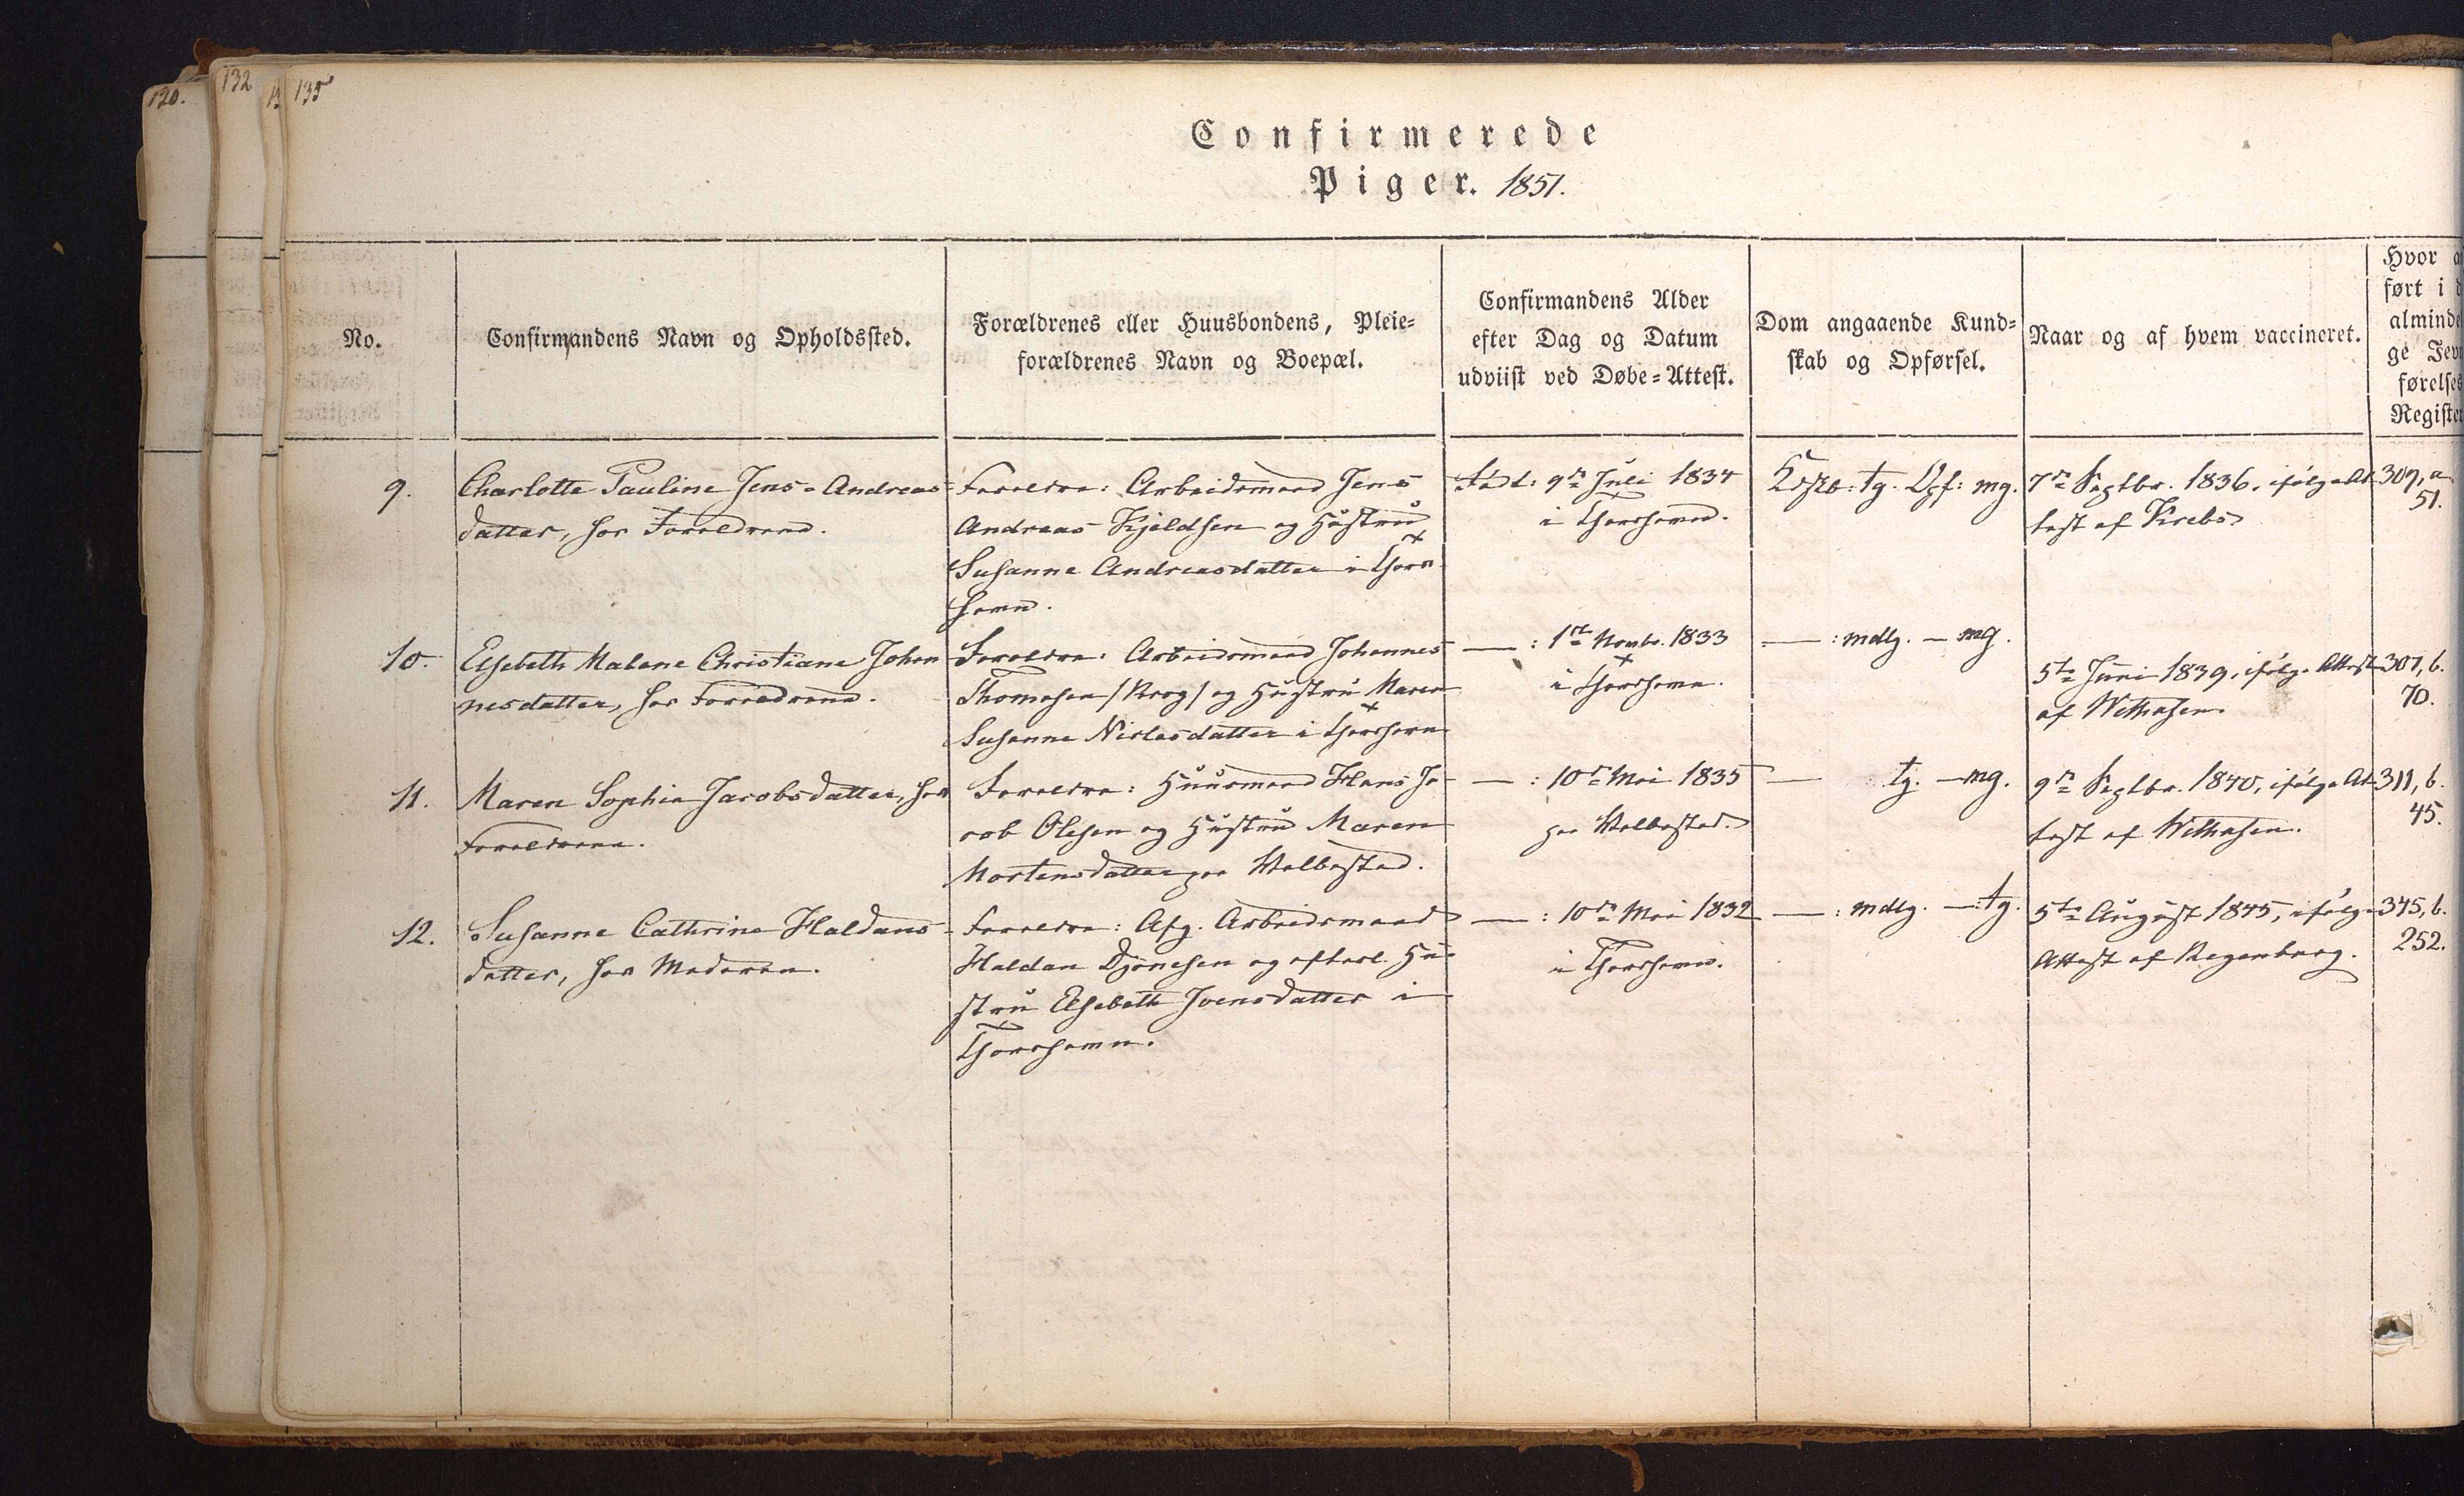 120.
132
13
135
Confirmerede
Piger. 1851.
No.
Confirmandens Navn og Opholdssted.
Forældrenes eller Huusbondens, Pleie=
forældrenes Navn og Boepæl.
Confirmandens Alder
efter Dag og Datum
udviist ved Døbe=Attest.
Dom angaaende Kund=
skab og Opførsel.
Naar og af hvem vaccineret.
Hvor
ført i
alminde
ge Jevn
førelses
Register
9.
Charlotte Pauline Jens=Andreas
datter, hos Forældrene.
Forældre: Arbeidsmand Jens
Andreas Kjeldsen og Hustru
Susanne Andreasdatter i Thors
havn.
Født: 9de Juli 1834
i Thorshavn.
Kdskb: tg. Opf: mg.
7de Septbr. 1836, ifølge At
test af Krebs
309, a.
51.
10.
Elsebeth Malene Christiane Johan
nesdatter, hos Forældrene.
Forældre: Arbeidsmand Johannes
Thomasen /Krog/ og Hustru Maren
Susanne Niclasdatter i Thorshavn
— : 1ste Novbr. 1833
i Thorshavn.
— : mdlg. — mg.
5te Juni 1839, ifølge Attest
af Wilhelsen.
307, b.
70.
11.
Maren Sophie Jacobsdatter, hos
Forældrene.
Forældre: Huusmand Hans Ja
cob Olesen og Hustru Maren
Mortensdatter paa Welbested.
— : 10de Mai 1835
paa Welbested.
— tg. — mg.
9de Septbr. 1840, ifølge At
test af Wilhelsen.
311, b.
45.
12.
Susanne Cathrine Haldans
datter, hos Moderen.
Forældre: Afg. Arbeidsmand
Haldan Djonesen og efterl. Hu
stru Elsebeth Joensdatter i
Thorshavn.
— : 10de Mai 1832
i Thorshavn.
— : mdlg. — tg.
5te August 1845, ifølge
Attest af Regenburg.
345, b.
252.